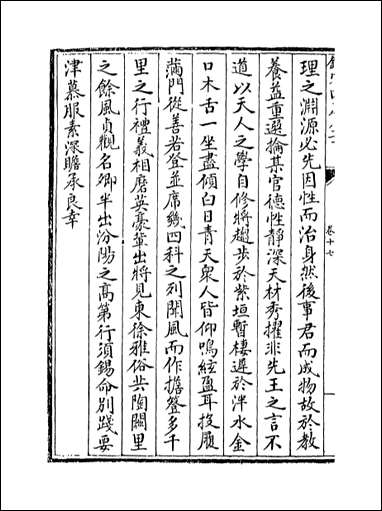 理之淵源必先因性而治身然後事君而成物故於教
養益重選掄某官德性靜深天材秀擢非先王之言不
道以天人之學自修將趨步於紫垣暫棲遲於泮水金
口木舌一坐盡傾白日青天衆人皆仰鳴絃盈耳投屨
滿門從善若登並席幾四科之列聞風而作擔簦多千
里之行禮義相磨英豪輩出將見東徐雅俗共陶闕里
之餘風貞觀名卿半出汾陽之高第行須錫命別踐要
津慕服素深瞻承良幸
卷十七